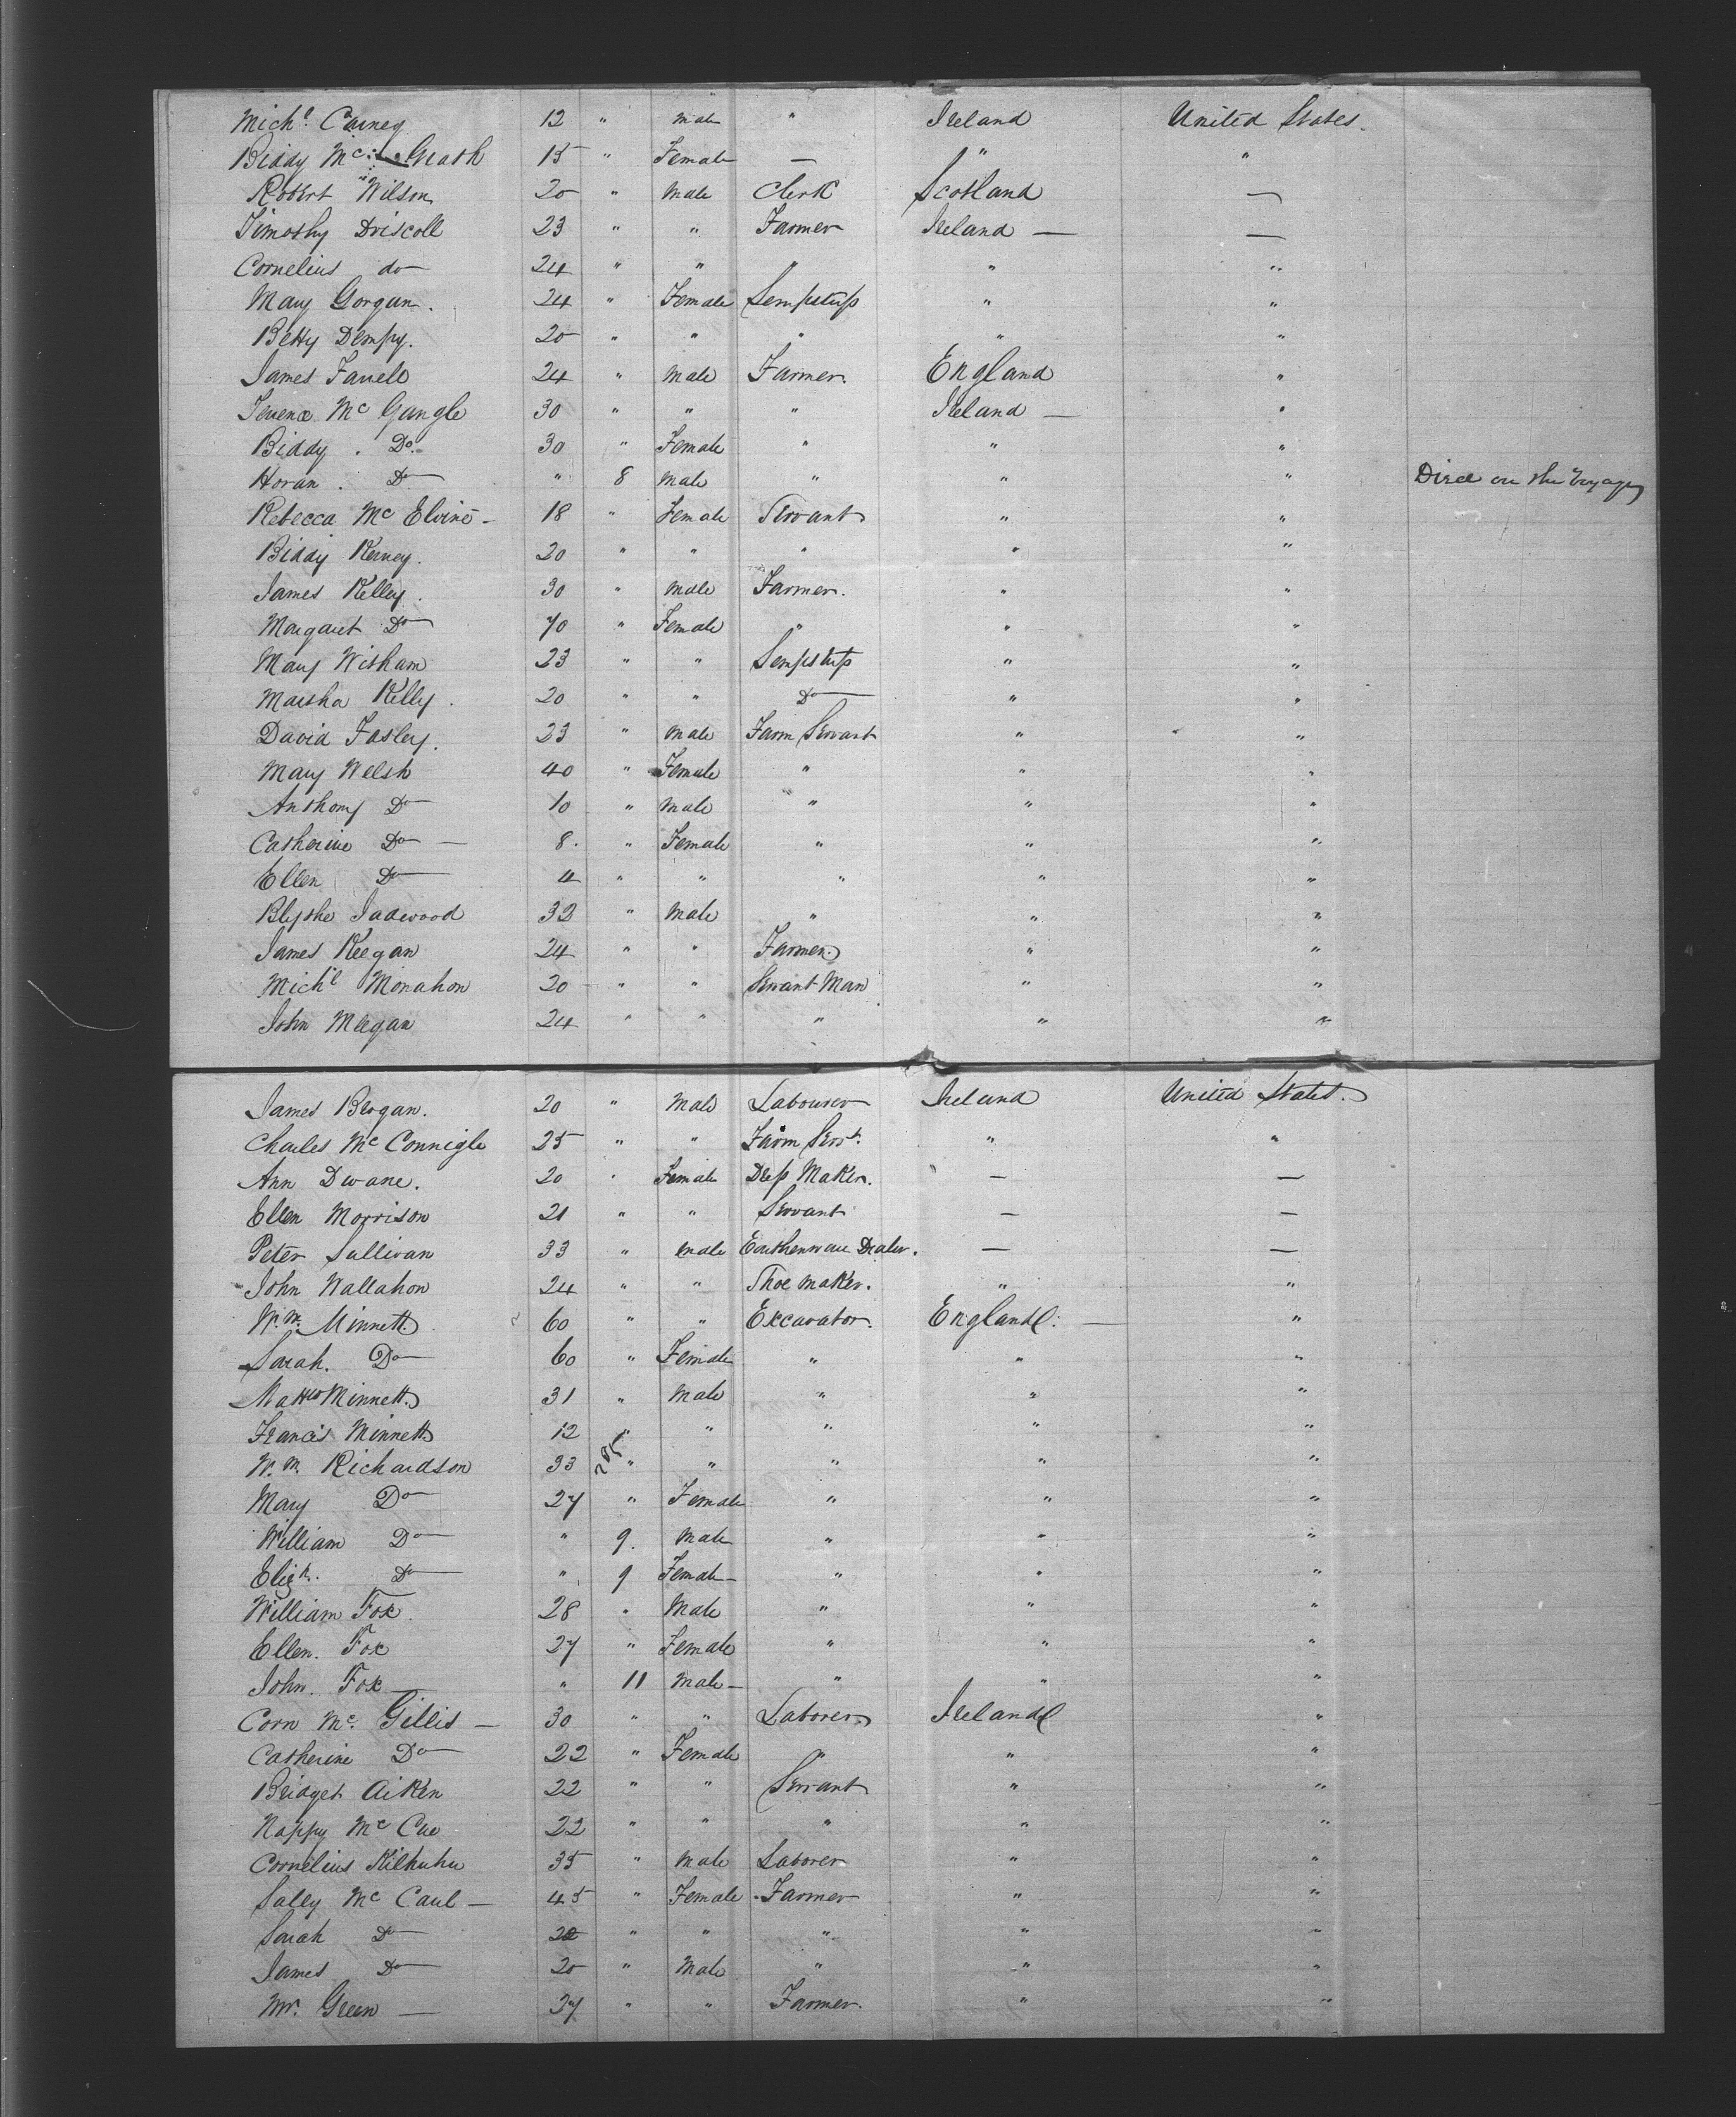 Mich.l Carney 12 " male " Ireland United States.
Biddy Mc Grath 15 " Female — " "
Robert Wilson 20 " male Clerk Scotland —
Timothy Driscoll 23 " " Farmer Ireland — —
Cornelius do 24 " " " " "
Mary Gorgan. 24 " Female Sempstress " "
Betty Dempsy. 20 " " " " "
James Farrell 24 " male Farmer. England "
Terence Mc Gungle 30 " " " Ireland — "
Biddy . Do. 30 " Female " " "
Horan . Do " 8 male " " " Died on the Voyage
Rebecca Mc Elvine - 18 " Female Servant " "
Biddy Kerney. 20 " " " " "
James Kelley. 30 " male Farmer. " "
Margaret Do 70 " Female " " "
Mary Witham 23 " " Sempstress " "
Martha Kelly. 20 " " Do " "
David Fasley. 23 " male Farm Servant " "
Mary Welsh 40 " Female " " "
Anthony Do 10 " male " " "
Catherine Do — 8. " Female " " "
Ellen Do 4 " " " " "
Blythe Jadwood 32 " male " " "
James Keegan 24 " " Farmer " "
Mich.l Monahon 20 " " Servant Man " "
John Meegan 24 " " " " "
James Brogan. 20 " Male Labourer Ireland United States.
Charles Mc Connigle 25 " " Farm Servt. " "
Ann Dwane. 20 " Female Dress Maker. — —
Ellen Morrison 21 " " Servant — —
Peter Sullivan 33 " male Earthenware Dealer. — —
John Wallahon 24 " " Shoe maker. " "
Wm. Minnett 60 " " Excavator. England. — "
Sarah. Do 60 " Female " " "
Mattw Minnett 31 " Male " " "
Francis Minnett 12 " " " " "
Wm. Richardson 33 " " " " "
Mary Do 27 " Female " " "
William Do " 9. male " " "
Elizh. Do " 9 Female " " "
William Fox. 28 " Male " " "
Ellen. Fox 27 " Female " " "
John. Fox " 11 male — " " "
Corn Mc. Gillis — 30 " " Laborer Ireland "
Catherine Do 22 " Female " " "
Bridget Aiken 22 " " Servant " "
Nappy Mc Cue 22 " " " " "
Cornelius Kilhuhu 35 " male Laborer " "
Sally Mc Caul — 45 " Female Farmer " "
Sarah Do 22 " " " " "
James Do 20 " Male " " "
Mr. Green — 37 " " Farmer. " "